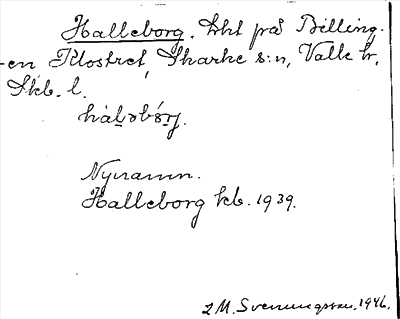 Halleborg. Lht på Billing-
en Klostret, Skarke s:n, Valle hr,
Skb. l.
hàḷəbórj.
Nynamn.
Halleborg kb. 1939.
2 M. Svenungsson. 1946.